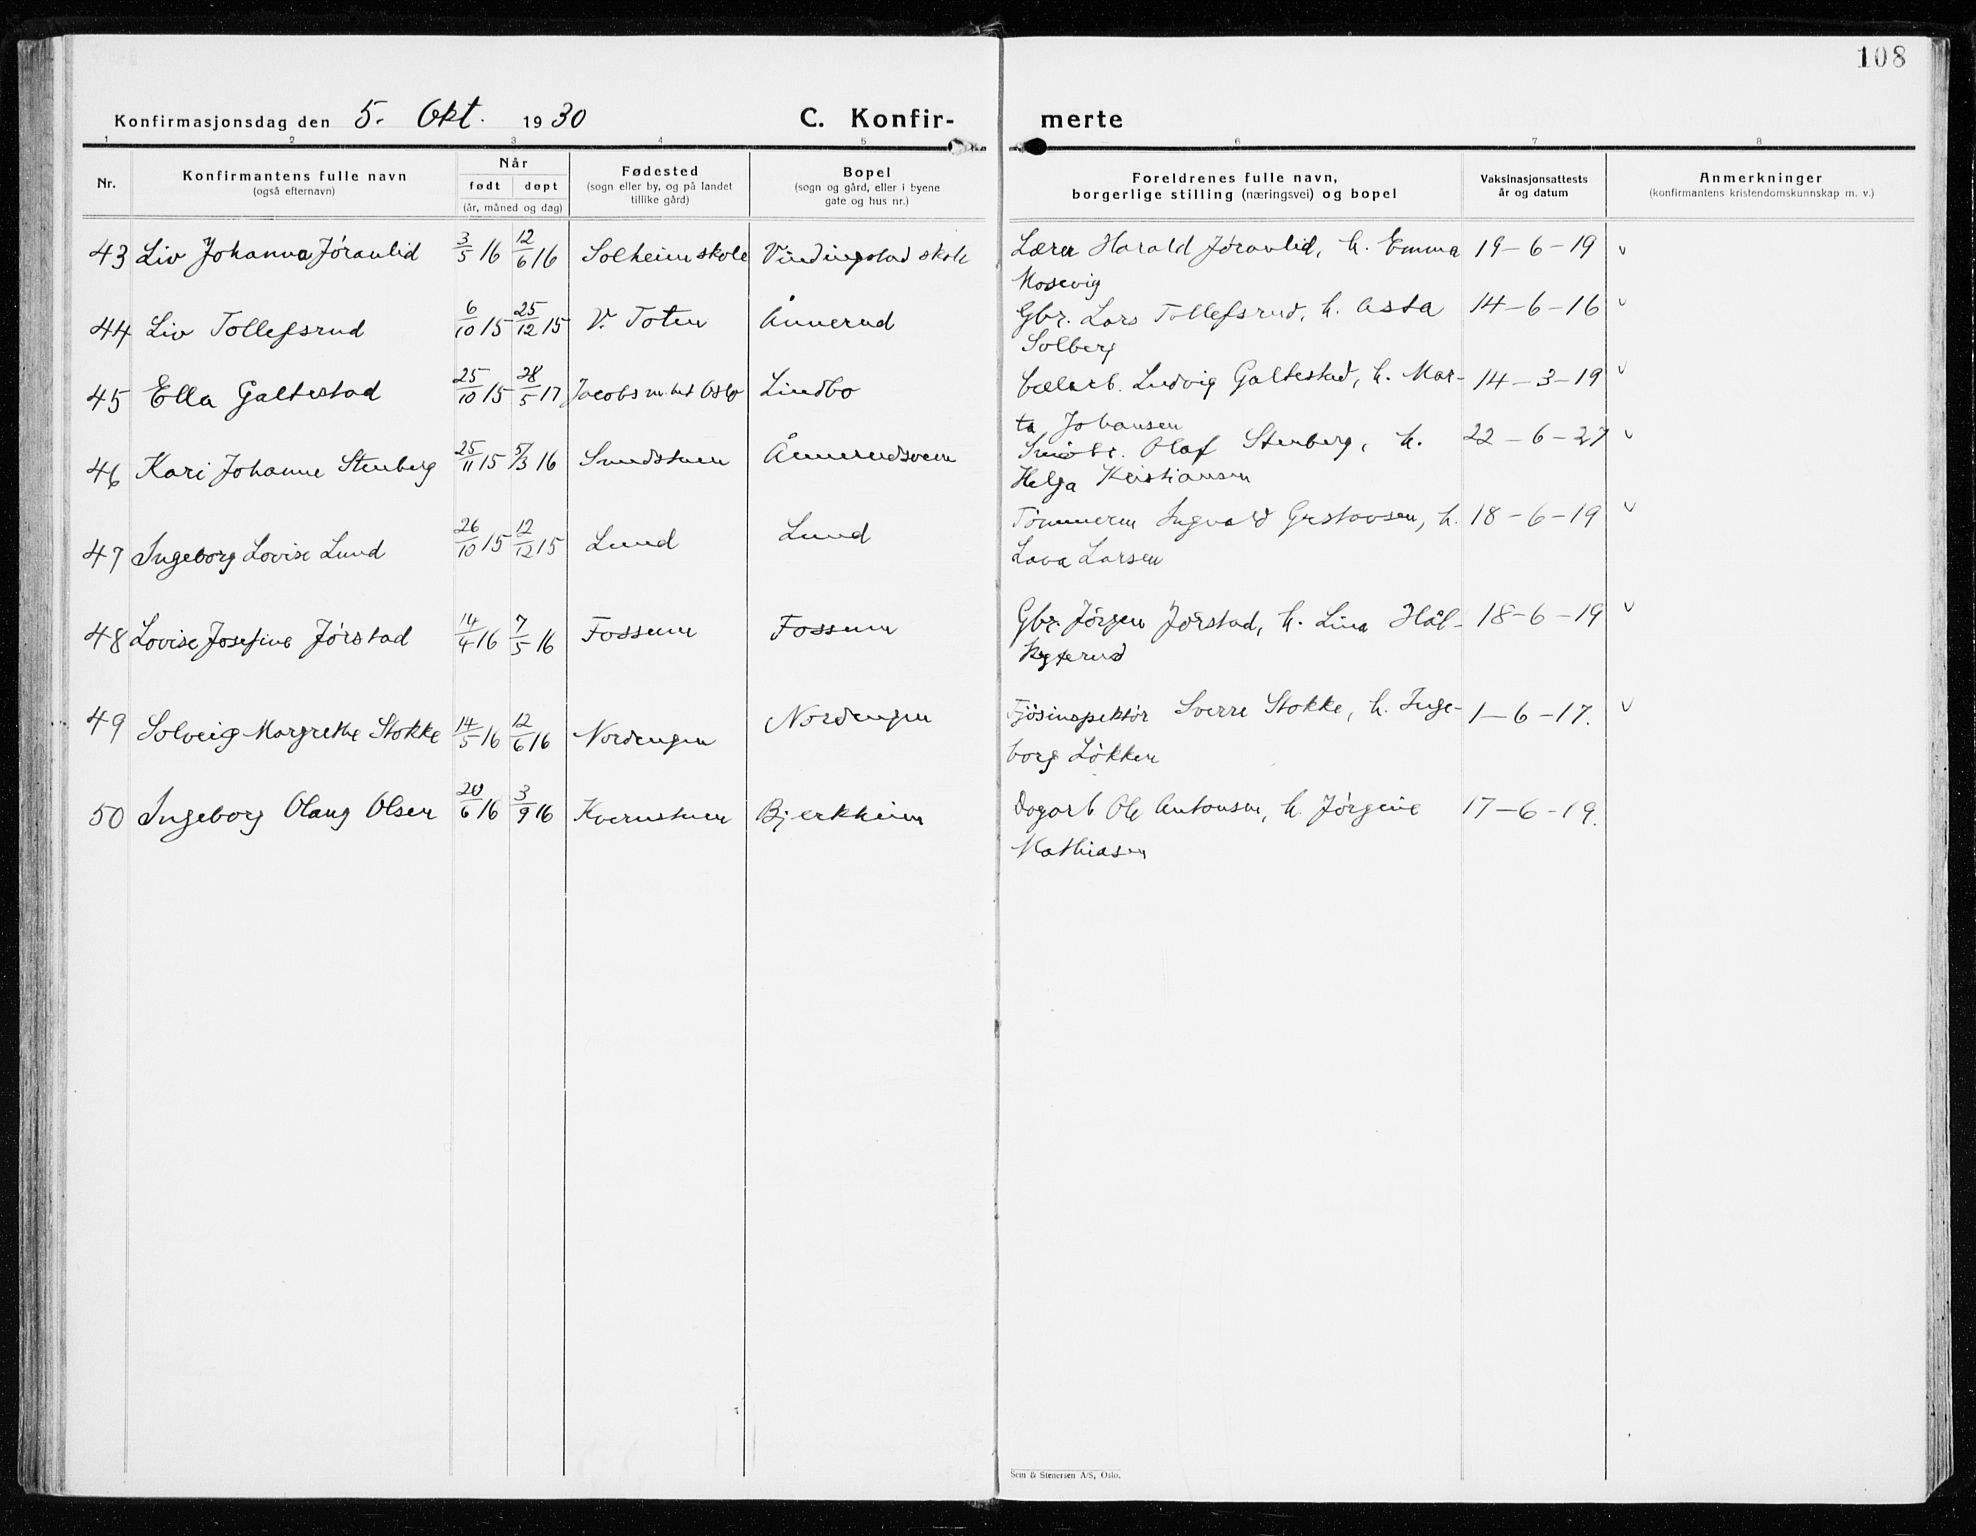 108
Konfirmasjonsdag den 5. Okt. 1930 C. Konfir- merte
1 2 3 4 5 6 7 8
Nr. Konfirmantens fulle navn (også efternavn) Når født døpt (år, måned og dag) Fødested (sogn eller by, og på landet tillike gård) Bopel (sogn og gård, eller i byene gate og hus nr.) Foreldrenes fulle navn, borgerlige stilling (næringsvei) og bopel Vaksinasjonsattests år og datum Anmerkninger (konfirmantens kristendomskunnskap m. v.)
43 Liv Johanna Jøranlid 3/5 16 12/6 16 Solheim skole Vindingstad skole Lærer Harald Jøranlid, h. Emma 19-6-19 v
Mosevig
44 Liv Tollefsrud 6/10 15 25/12 15 V. Toten Ånnerud Gbr. Lars Tollefsrud, h. Asta 14-6-16 v
Solberg
45 Ella Galtestad 25/10 15 28/5 17 Jacobs Oslo Lindbo Ludvig Galtestad, h. Mar- 14-3-19 v
ta Johansen
46 Kari Johanne Stenberg 25/11 15 5/3 16 Sundstuen Ånnerudsveen Småbr. Olaf Stenberg, h. 22-6-27 v
Helga Kristiansen
47 Ingeborg Lovise Lund 26/10 15 12/12 15 Lund Lund Tømmerm Ingvald Gustavsen, h. 18-6-19 v
Lava Larsen
48 Lovise Josefine Jørstad 14/4 16 7/5 16 Fossum Fossum Gbr. Jørgen Jørstad, h. Lina 18-6-19 v
49 Solveig Margrethe Stokke 14/5 16 12/6 16 Nordengen Nordengen Fjøsinspektør Sverre Stokke, h. Inge- 1-6-17. v
borg Løkken
50 Ingeborg Olaug Olsen 20/6 16 3/9 16 Kvernstuen Bjerkheim Dagarb Ole Antonsen, h. Jørgine 17-6-19.
Mathiasen
Sem & Stenersen A/S, Oslo.